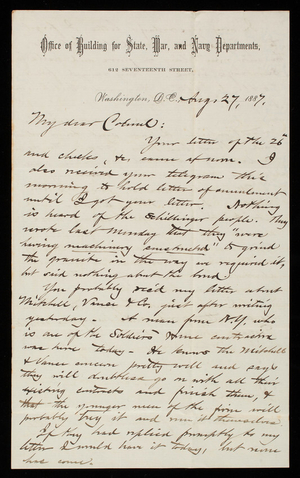 Office of Building for State, War, and Navy Departments,
612 SEVENTEENTH STREET,
Washington, D.C. Aug. 27, 1887.
My dear Colonel:
Your letter of the 26th
and checks, &c. came at noon. I
also received your telegram this
morning to hold letter of amendment
until I got your letter. Nothing
is heard of the Schillinger people. They
wrote last Monday that they "were
having machinery constructed" to grind
the granite in the way we required it,
but said nothing about the bond.
You probably rec'd my letter about
Mitchell, Vance & Co., just after writing
yesterday. A man from N.Y. who
is one of the Soldiers Home contractors
was here today. He knows the Mitchell
& Vance concern pretty well and says
they will doubtless go on with all their
existing contracts and finish them, &
that the younger men of the firm will
probably buy it and run it themselves.
If they had replied promptly to my
letter I would have it today, but none
has come.